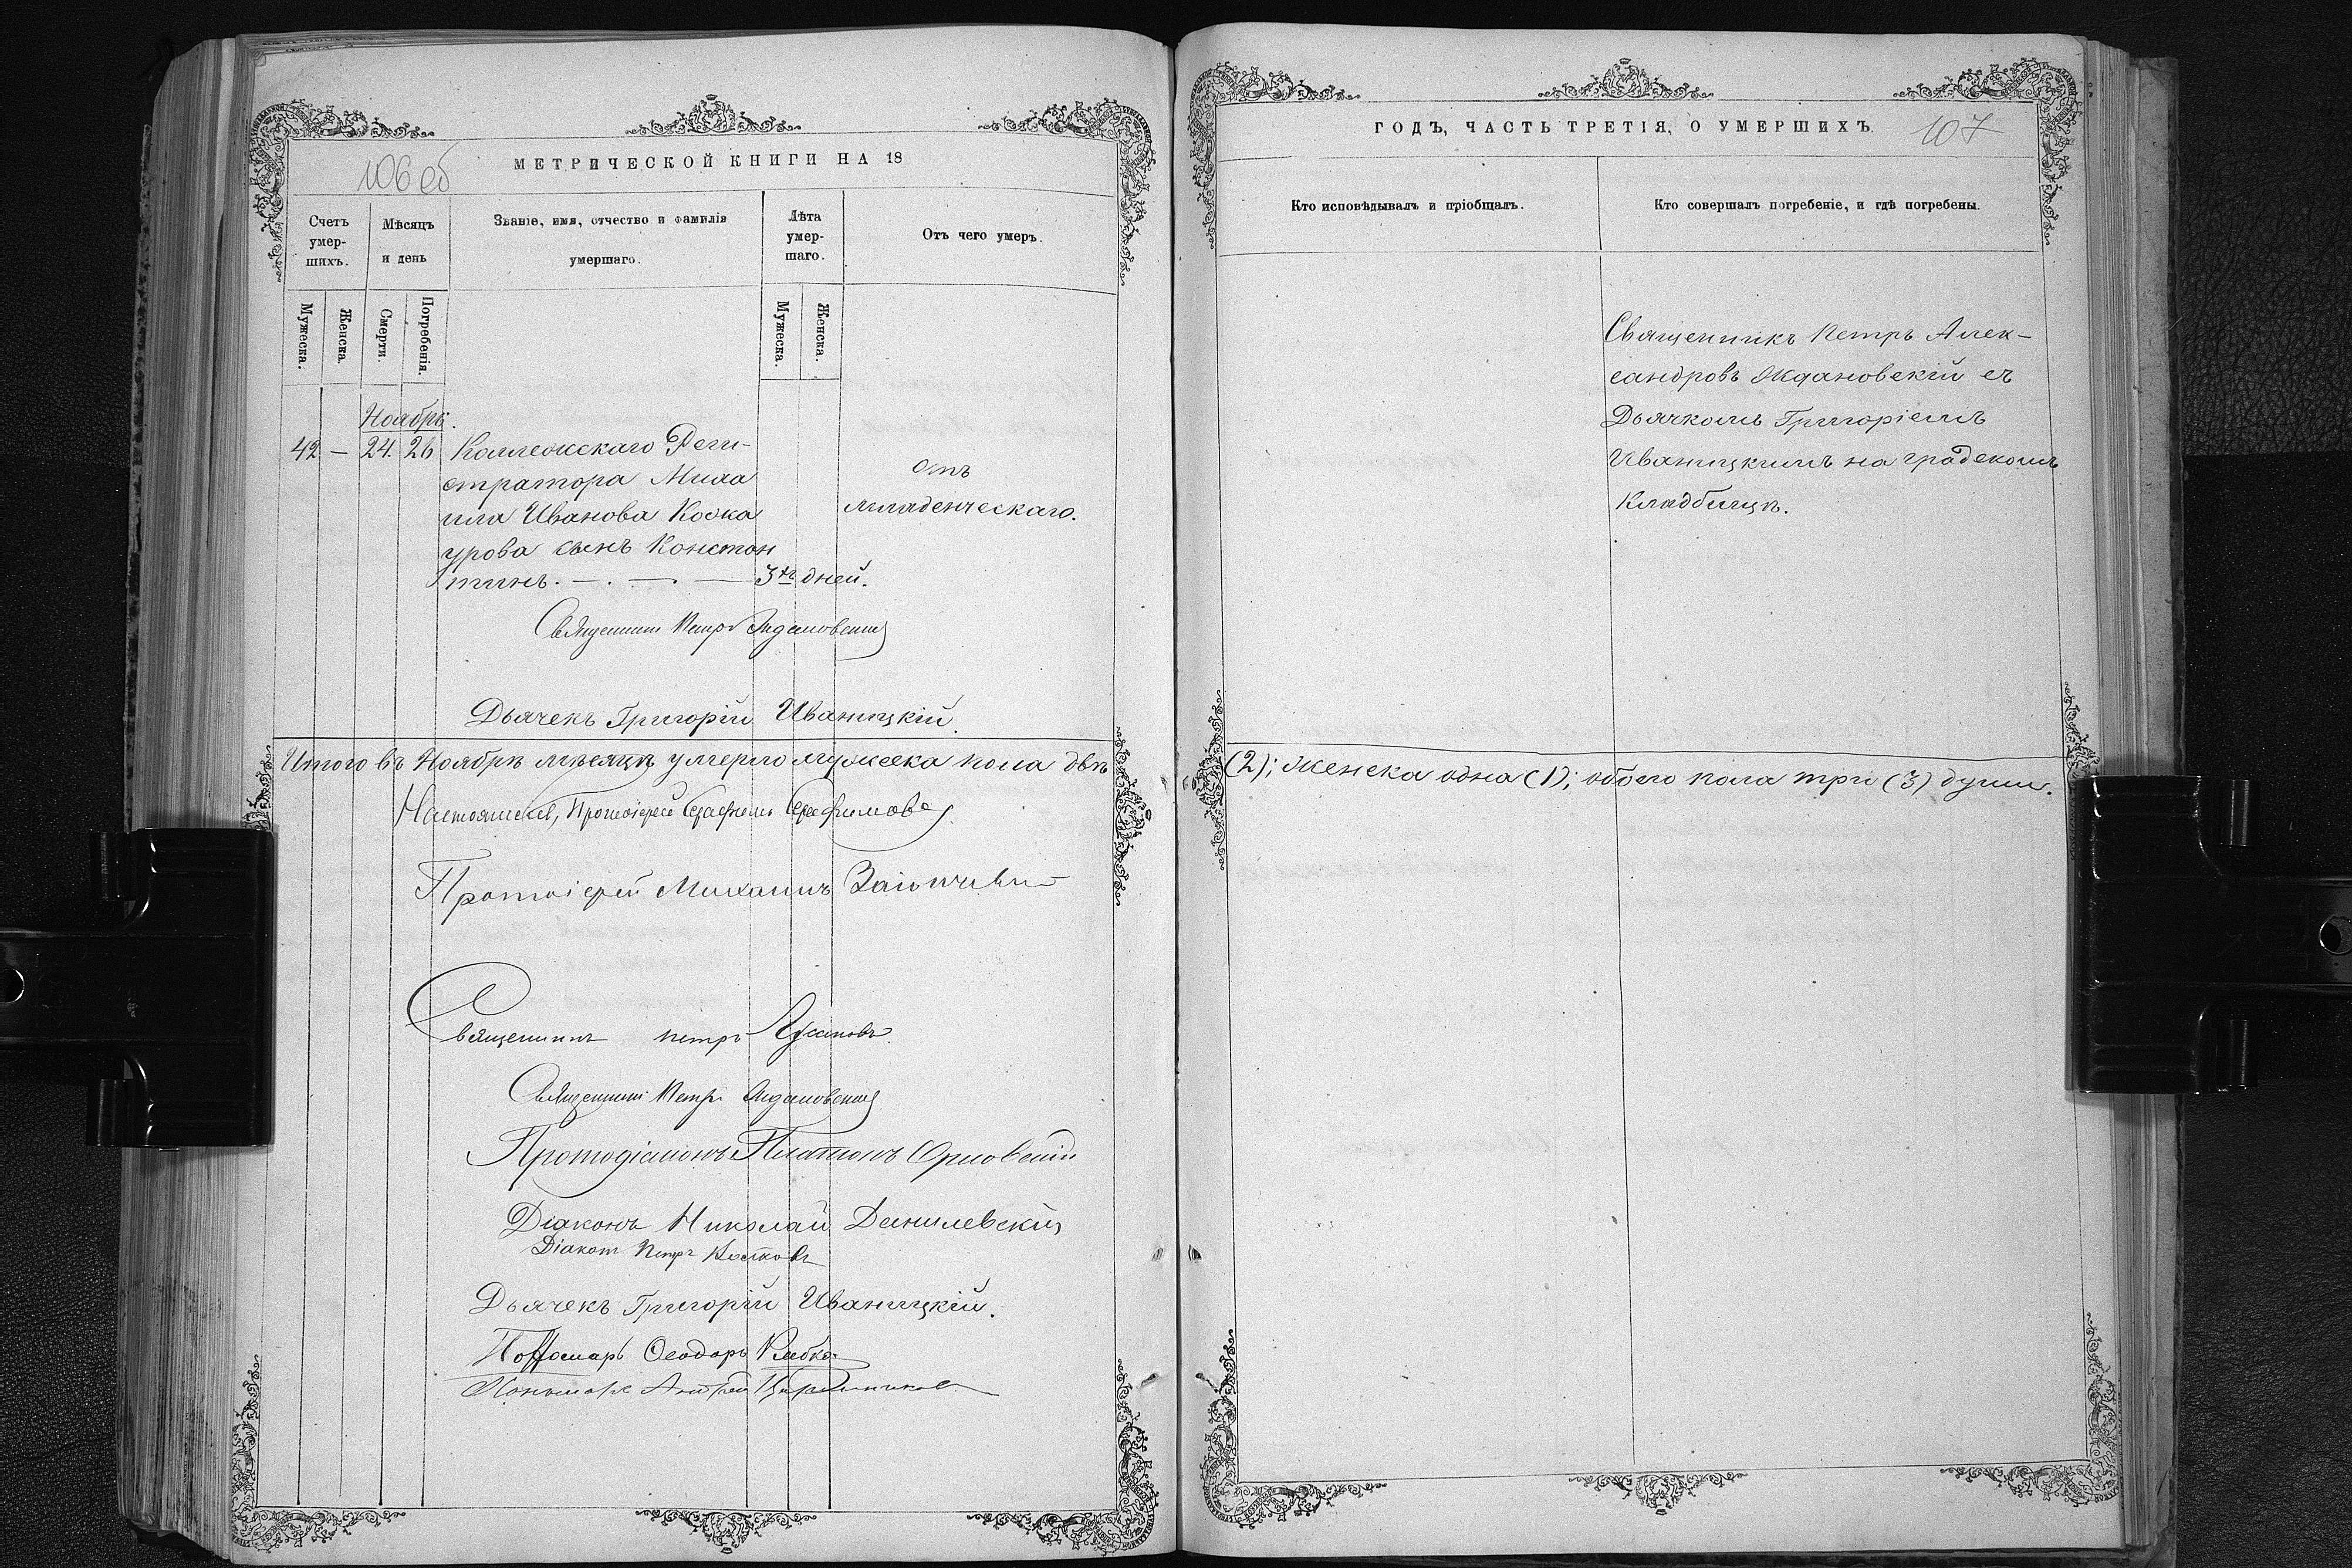 106 об
МЕТРИЧЕСКОЙ КНИГИ НА 18
Счетъ умер-шихъ.
Мѣсяцъ и день
Званіе, имя, отчество и фамилія умершаго.
Лѣта умер-шаго.
Отъ чего умеръ.
Мужеска.
Женска.
Смерти.
Погребенія.
Мужеска.
Женска.
Ноябрь.
42 — 24. 26 Коллежскаго Реги-
стратора Миха
ила Иванова Кочка
урова сынъ Констан
тинъ. —. — — 3хъ дней.
отъ
младенческаго.
Священникъ Петръ Ждановскій
Дьячекъ Григорій Иваницкій.
Итого въ Ноябрѣ мѣсяцѣ умерло мужеска пола двѣ
Настоятель, Протоіерей Серафимъ Серафимовъ
Протоіерей Михаилъ
Священникъ Петръ
Священникъ Петръ Ждановскій
Протодіаконъ Платонъ Орловскій
Діаконъ Николай Данилевскій
Діаконъ Петръ Костковъ
Дьячекъ Григорій Иваницкій.
Пономарь Ѳеодоръ Рябко
Пономарь Андрей
ГОДЪ, ЧАСТЬ ТРЕТІЯ, О УМЕРШИХЪ.
107
Кто исповѣдывалъ и пріобщалъ.
Кто совершалъ погребеніе, и гдѣ погребены.
Священникъ Петръ Алек-
сандровъ Ждановскій съ
Дьячкомъ Григоріемъ
Иваницкимъ на градскомъ
Кладбищѣ.
(2); женска одна (1); обоего пола три (3) души.